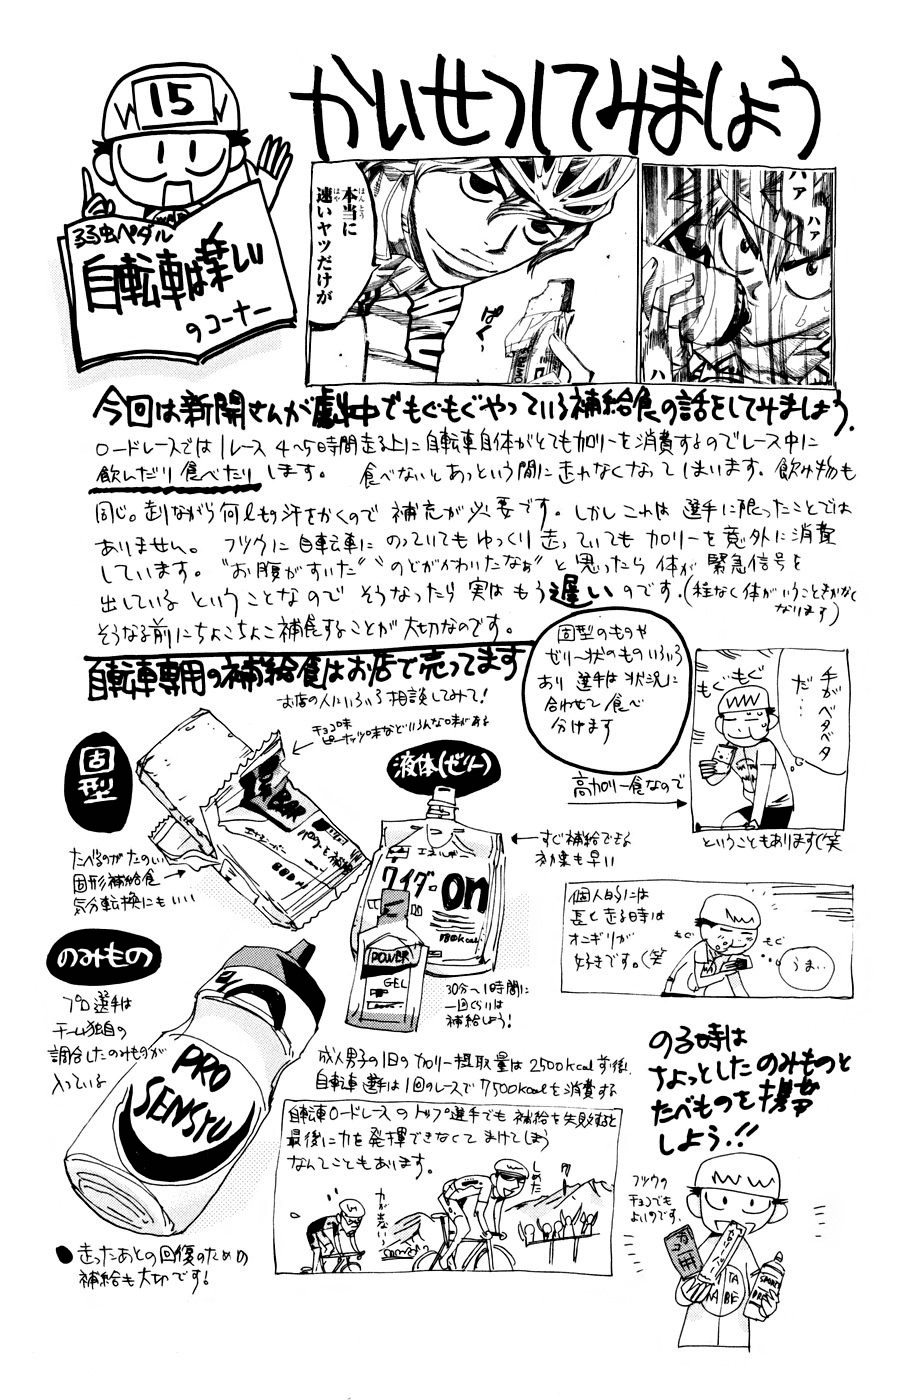 かいせつしてみましょう
15
弱虫ペダル
自転車は楽しい
のコーナー
本当に
ほんとう
速いヤツだけが
はや
ぱく
ハァ
ハァ
今回は新開さんが劇中でもぐもぐやっている補給食の話をしてみましょう.
ロードレースでは1レース 4〜5時間走る上に自転車自体がとてもカロリーを消費するのでレース中に
飲んだり食べたりします。 食べないとあっという間に走れなくなってしまいます。飲み物も
同じ。走りながら何ℓも汗をかくので 補充が必要です。しかしこれは選手に限ったことでは
ありません。 フツウに自転車にのっていてもゆっくり走っていてもカロリーを意外に消費
しています。"お腹がすいた""のどがかわいたなぁ"と思ったら体が緊急信号を
出しているということなのでそうなったら実はもう遅いのです。(程なく体がいうことをきかなく
なります)
そうなる前にちょこちょこ補食することが大切なのです。
自転車専用の補給食はお店で売ってます
お店の人にいろいろ相談してみて!
固型のものや
ゼリー状のものいろいろ
あり 選手は状況に
合わせて食べ
分けます
チョコ味
ピーナッツ味などいろんな味がある
固型
たべるのがたのしい
固形補給食
気分転換にもいい
BAR
液体(ゼリー)
エネルギー
ワイダーon
180kcal
POWER
GEL
すぐ補給できる
効果も早い
30分〜1時間に
一回ぐらいは
補給しよう!
高カロリー食なので
もぐもぐ
手がベタベタ
だ…
ということもあります(笑
個人的には
長く走る時は
オニギリが
好きです。(笑
もぐ
もぐ
うま…
のみもの
プロ選手は
チーム独自の
調合したのみものが
入っている
PRO
SENSYU
成人男子の1日のカロリー摂取量は2500kcal前後.
自転車選手は1回のレースで7500kcalを消費する
自転車ロードレースのトップ選手でも補給を失敗すると
最後に力を発揮できなくてまけてしまう
なんてこともあります。
力が出ないっ
しめた
のる時は
ちょっとしたのみものと
たべものを携帯
しよう.!!
フツウの
チョコでも
よいのです.
NA
TA
BE
●走ったあとの回復のための
補給も大切です!